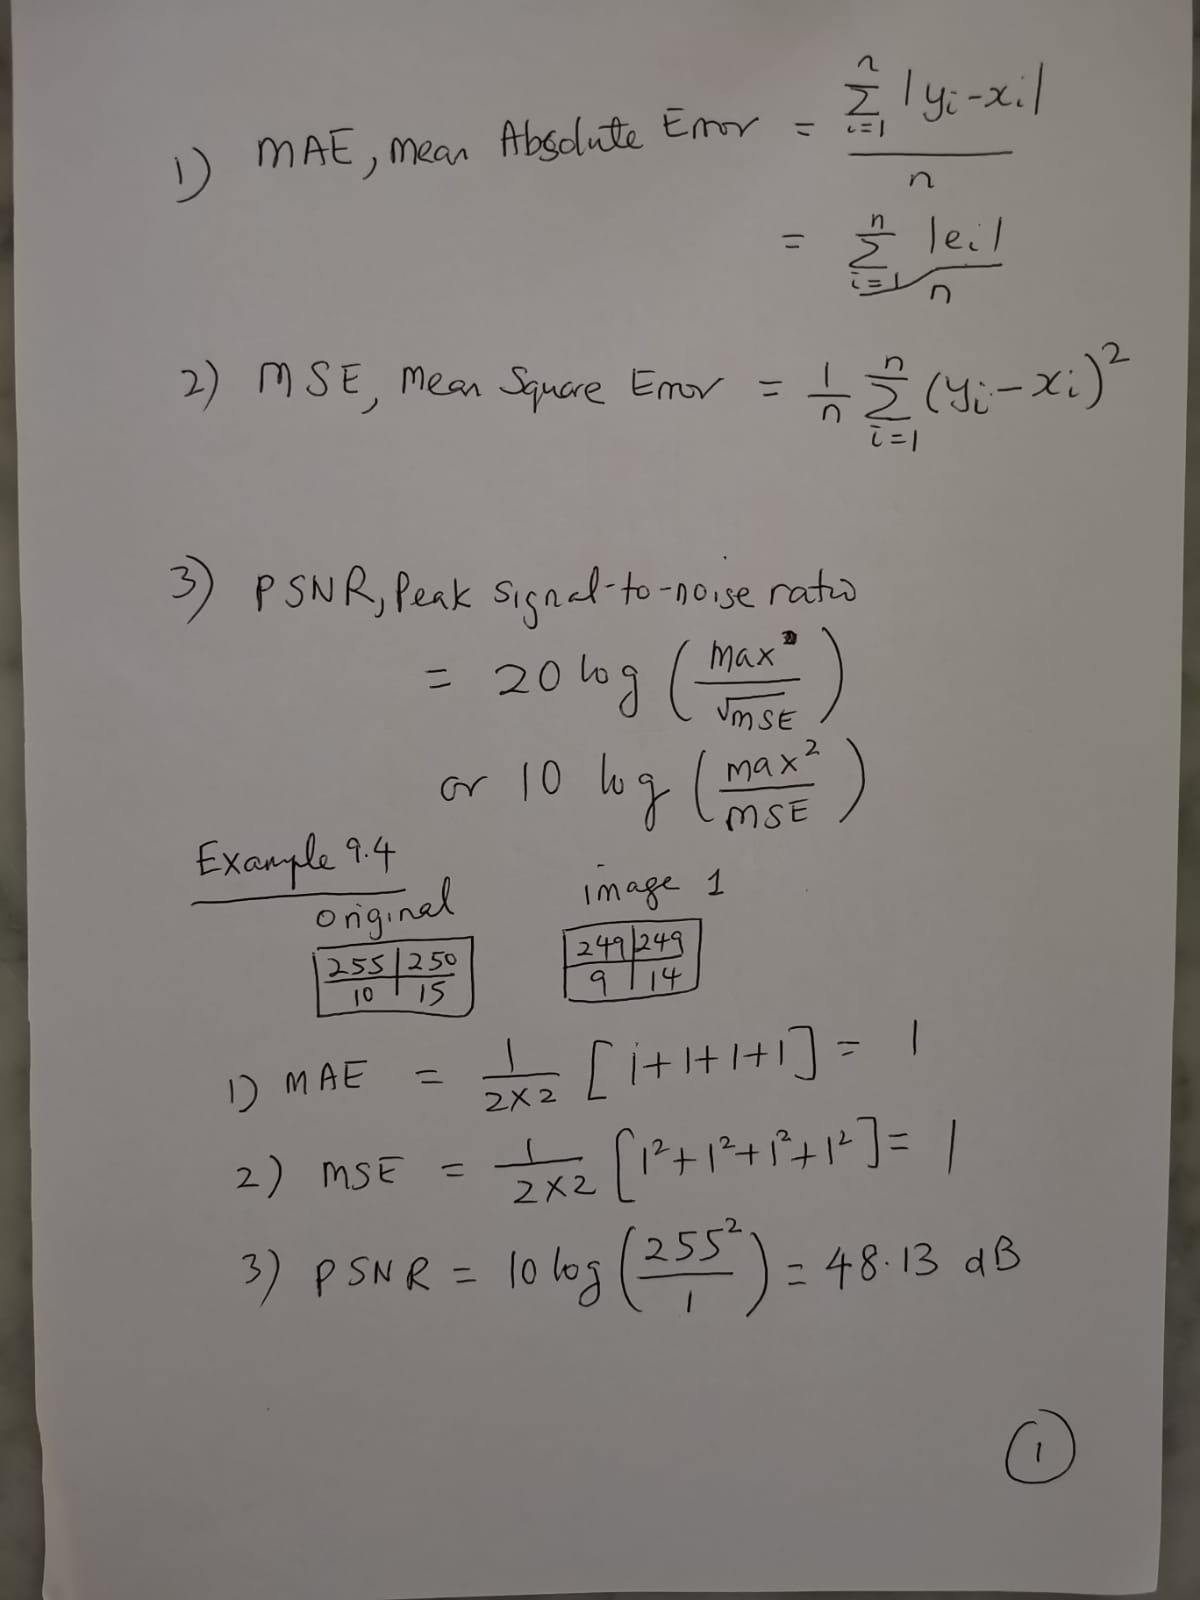 1) MAE, Mean Absolute Error = Σ_{i=1}^{n} |yi-xi| / n
= Σ_{i=1}^{n} |ei| / n
2) MSE, Mean Square Error = 1/n Σ_{i=1}^{n} (yi-xi)²
3) PSNR, Peak signal-to-noise ratio
= 20 log (max / √MSE)
or 10 log (max² / MSE)
Example 9.4
original image 1
255 | 250 249 | 249
10 | 15 9 | 14
1) MAE = 1/2×2 [1+1+1+1] = 1
2) MSE = 1/2×2 [1²+1²+1²+1²] = 1
3) PSNR = 10 log (255² / 1) = 48.13 dB
1